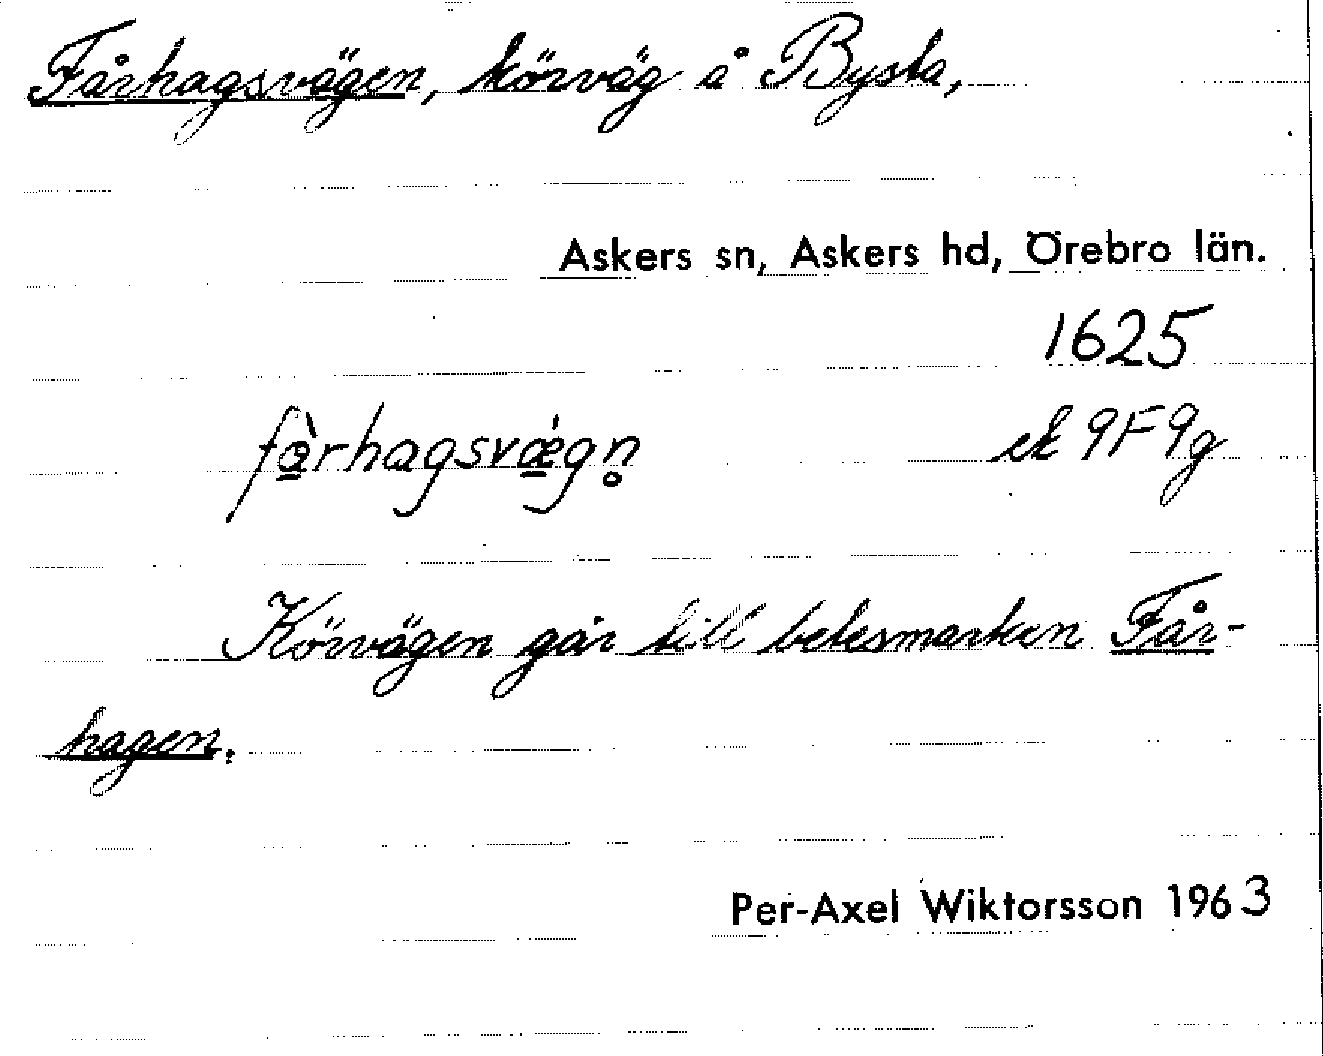 Fårhagsvägen, körväg å Bysta,
Askers sn, Askers hd, Örebro län.
1625
fà̲rhagsvǽ̲gn̥ ek 9F9g
Körvägen går till betesmarken Får-
hagen.
Per-Axel Wiktorsson 1963